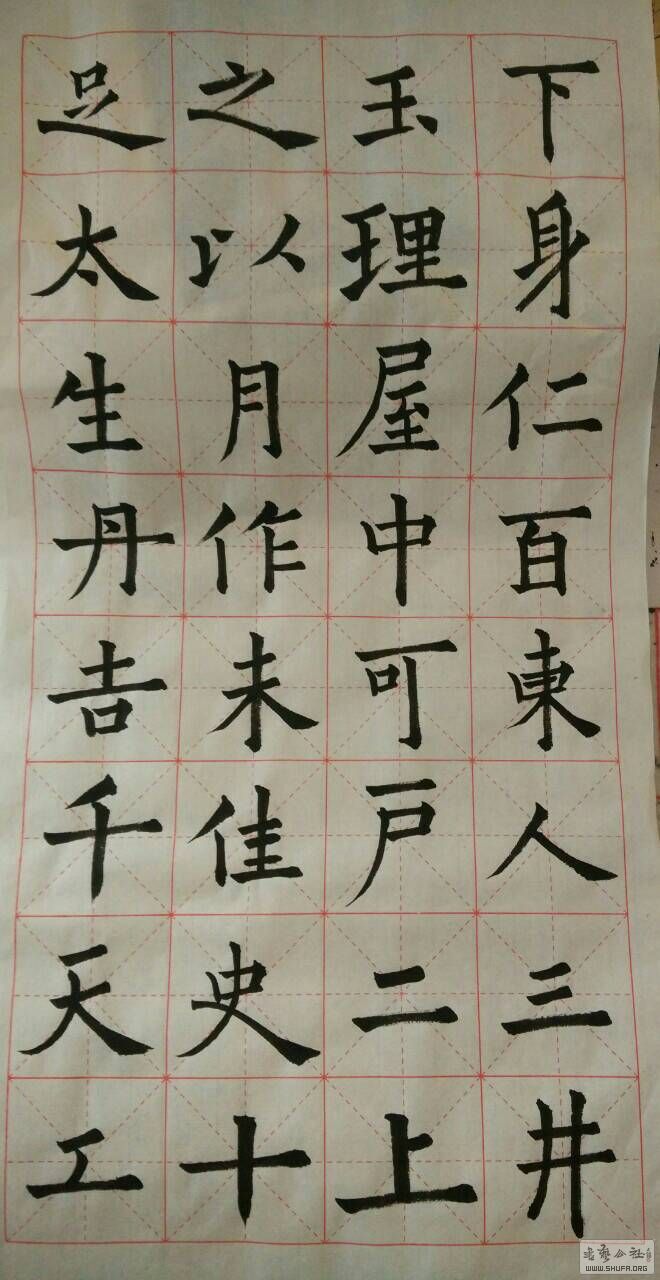 下身仁百東人三井
玉理屋中可戸二上
之以月作未佳史十
足太生丹𠮷千天工
WWW.SHUFA.ORG